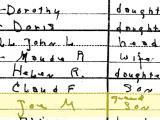 - Dorothy daughter
- Doris daughte
John L. head
- Maude A wife
Helen R. daughte
Claud F Son
Joe M. grand son